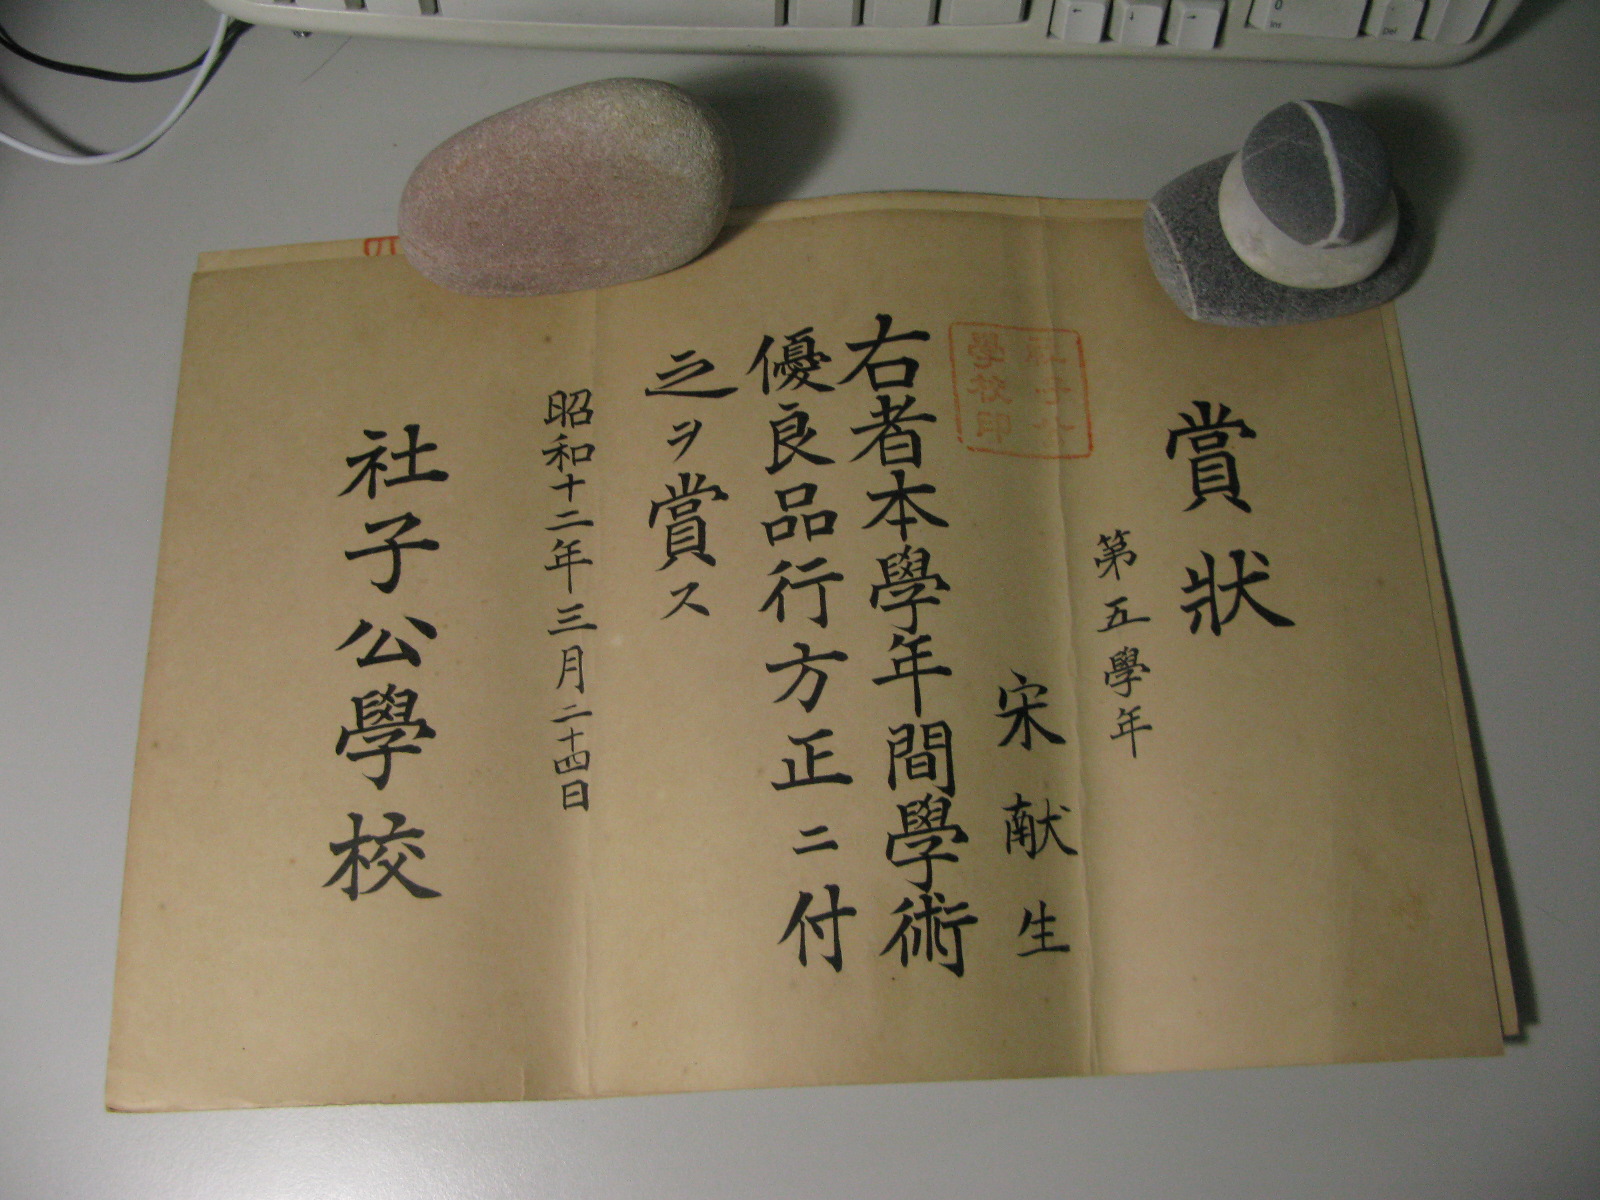 賞狀
第五學年
宋献生
右者本學年間學術
優良品行方正ニ付
之ヲ賞ス
昭和十二年三月二十四日
社子公學校